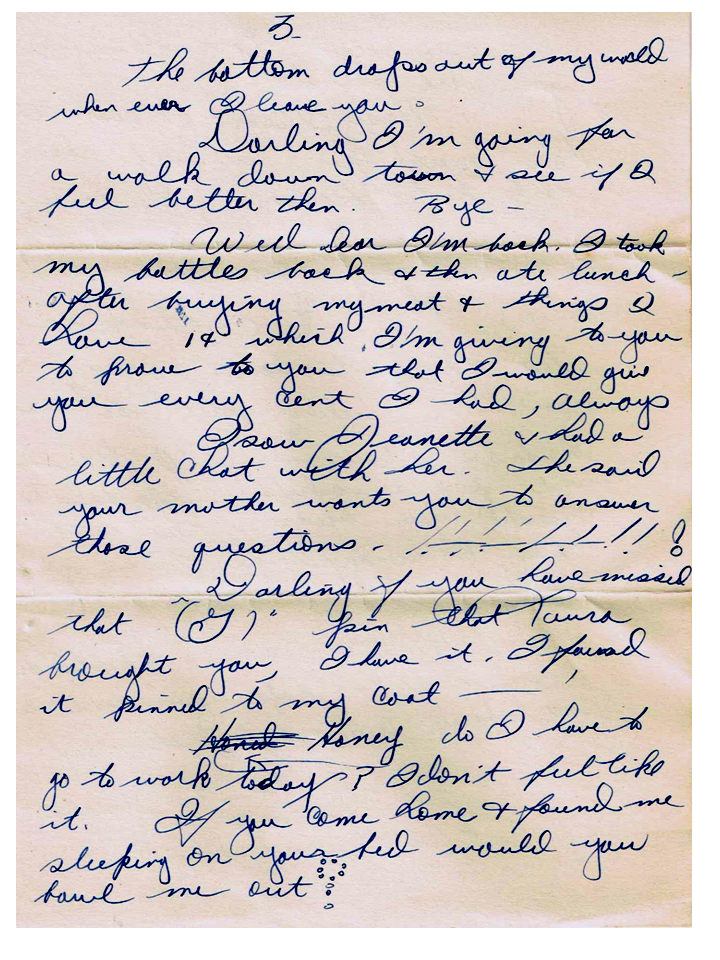 3.
The bottom drops out of my world
when ever I leave you.
Darling I'm going for
a walk down town & see if I
feel better then. Bye -
Well dear I'm back. I took
my bottles back & then ate lunch -
after buying my meat & things I
have 1¢ which I'm giving to you
to prove to you that I would give
you every cent I had, always
I saw Jeanette & had a
little chat with her. She said
your mother wants you to answer
those questions. !!!!!!!!!?
Darling if you have missed
that "(J)" pin that Laura
brought you, I have it. I found
it pinned to my coat —
Honey do I have to
go to work today? I don't feel like
it. If you come home & found me
sleeping on your bed would you
bawl me out?